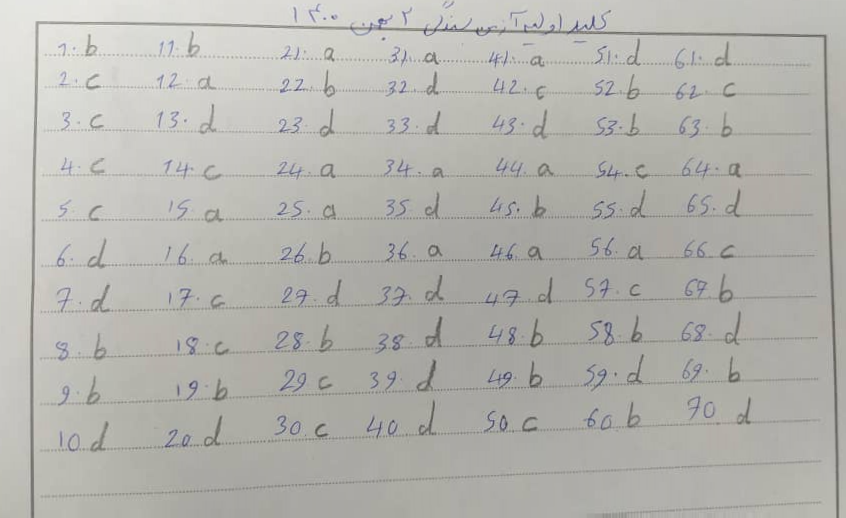 کلید اولیه آزمون ۲ بهمن ۱۴۰۰
1. b 11. b 21. a 31. a 41. a 51. d 61. d
2. c 12. a 22. b 32. d 42. c 52. b 62. c
3. c 13. d 23. d 33. d 43. d 53. b 63. b
4. c 14. c 24. a 34. a 44. a 54. c 64. a
5. c 15. a 25. a 35. d 45. b 55. d 65. d
6. d 16. a 26. b 36. a 46. a 56. a 66 c
7. d 17. c 27. d 37. d 47. d 57. c 67. b
8. b 18. c 28. b 38. d 48. b 58. b 68. d
9. b 19. b 29 c 39. d 49. b 59. d 69. b
10 d 20 d 30 c 40 d 50 c 60 b 70 d